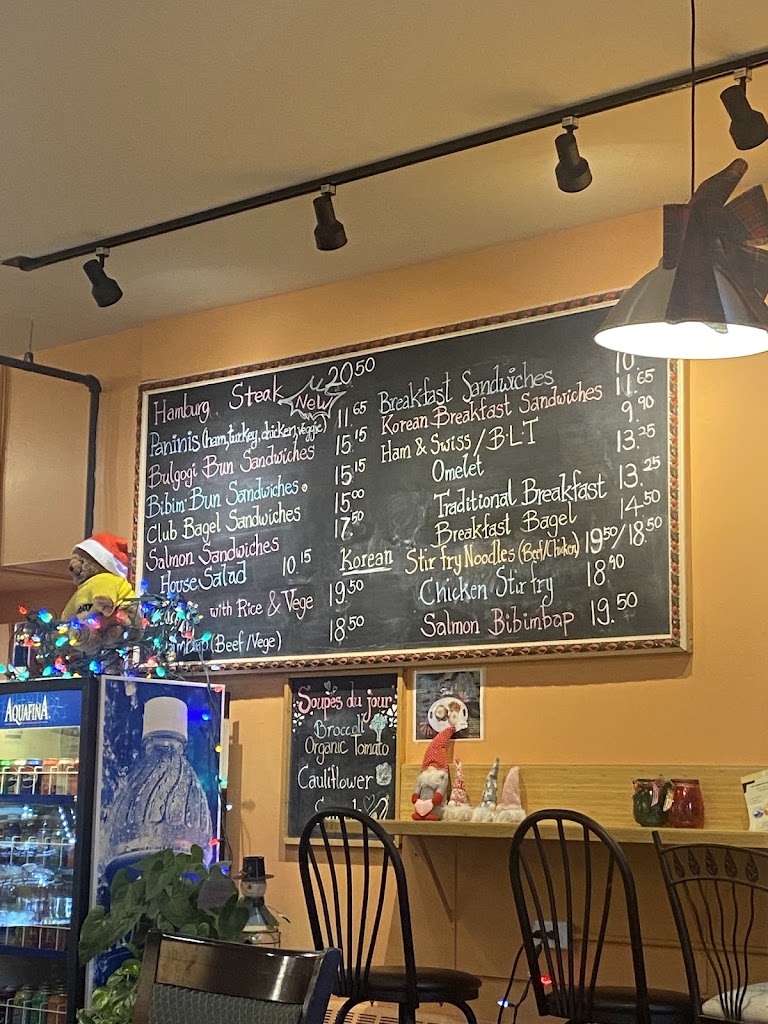 Hamburg Steak New 20.50
Paninis (ham, turkey, chicken, veggie) 11.65
Bulgogi Bun Sandwiches 15.15
Bibim Bun Sandwiches 15.15
Club Bagel Sandwiches 15.00
Salmon Sandwiches 17.50
House Salad 10.15
with Rice & Vege 19.50
(Beef/Vege) 18.50
Breakfast Sandwiches 10.
Korean Breakfast Sandwiches 11.65
Ham & Swiss / B.L.T 9.90
Omelet 13.25
Traditional Breakfast 13.25
Breakfast Bagel 14.50
Korean Stir fry Noodles (Beef/Chicken) 19.50/18.50
Chicken Stir fry 18.90
Salmon Bibimbap 19.50
Soupes du jour
Broccoli
Organic Tomato
Cauliflower
AQUAFINA